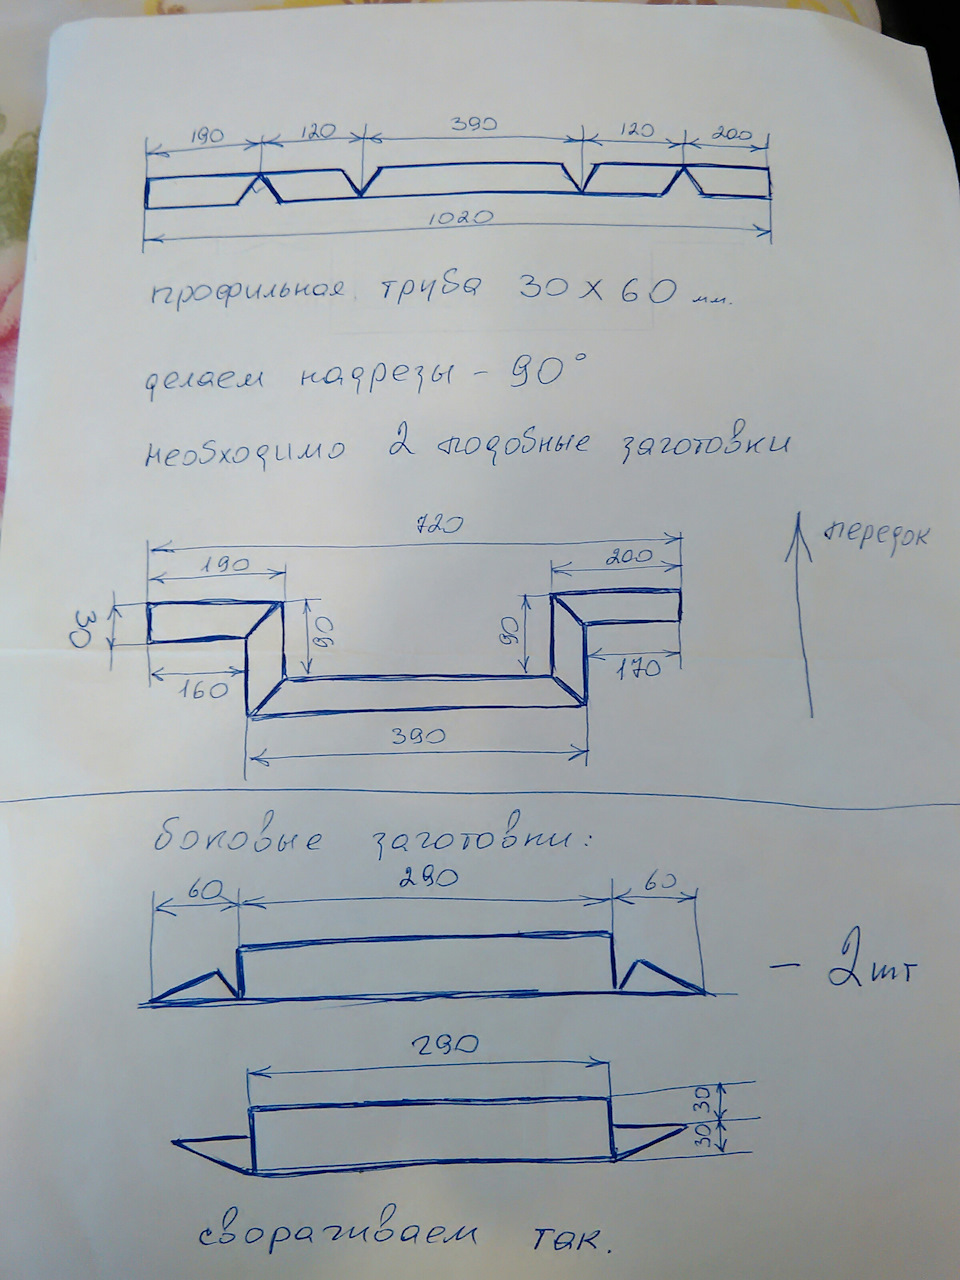 190 120 390 120 200
1020
профильная труба 30 х 60 мм.
делаем надрезы - 90°
необходимо 2 подобные заготовки
720
передок
190 200
30 90 90
160 170
390
боковые заготовки:
60 290 60
- 2 шт
290
30
30
сворачиваем так.